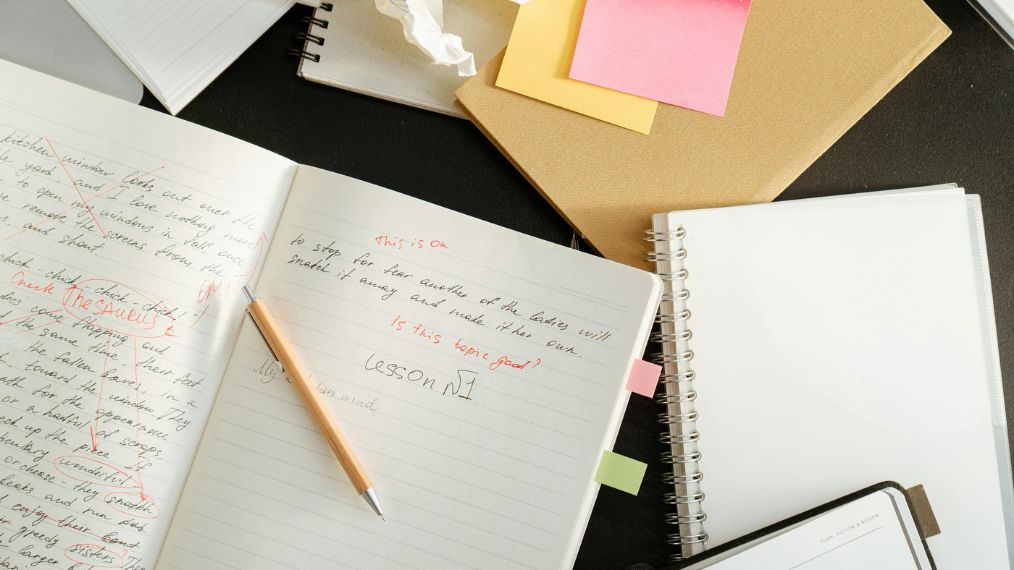 kitchen window looks out over the
yard and I love nothing more
to open my windows in fall once
remove the screens from the
and shout
chick-chick-chick-chick!
Check Thesaurus
come flapping and
the same time, their feet
the fallen leaves, in a
toward the window. They
for the appearance
or a handful of scraps,
up the piece of
wonderful
or cheese - they snatch
beaks and run and
enjoy their
greedy sisters. The
larger
This is on
to stop for fear another of the ladies will
snatch it away and made it her own.
Is this topic good?
Lesson №1
My
PLAN, ACTION & REVIEW